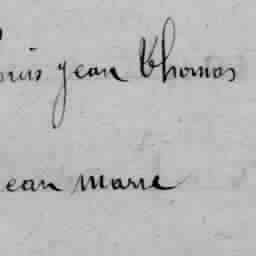 ouis jean thomas
ean marie